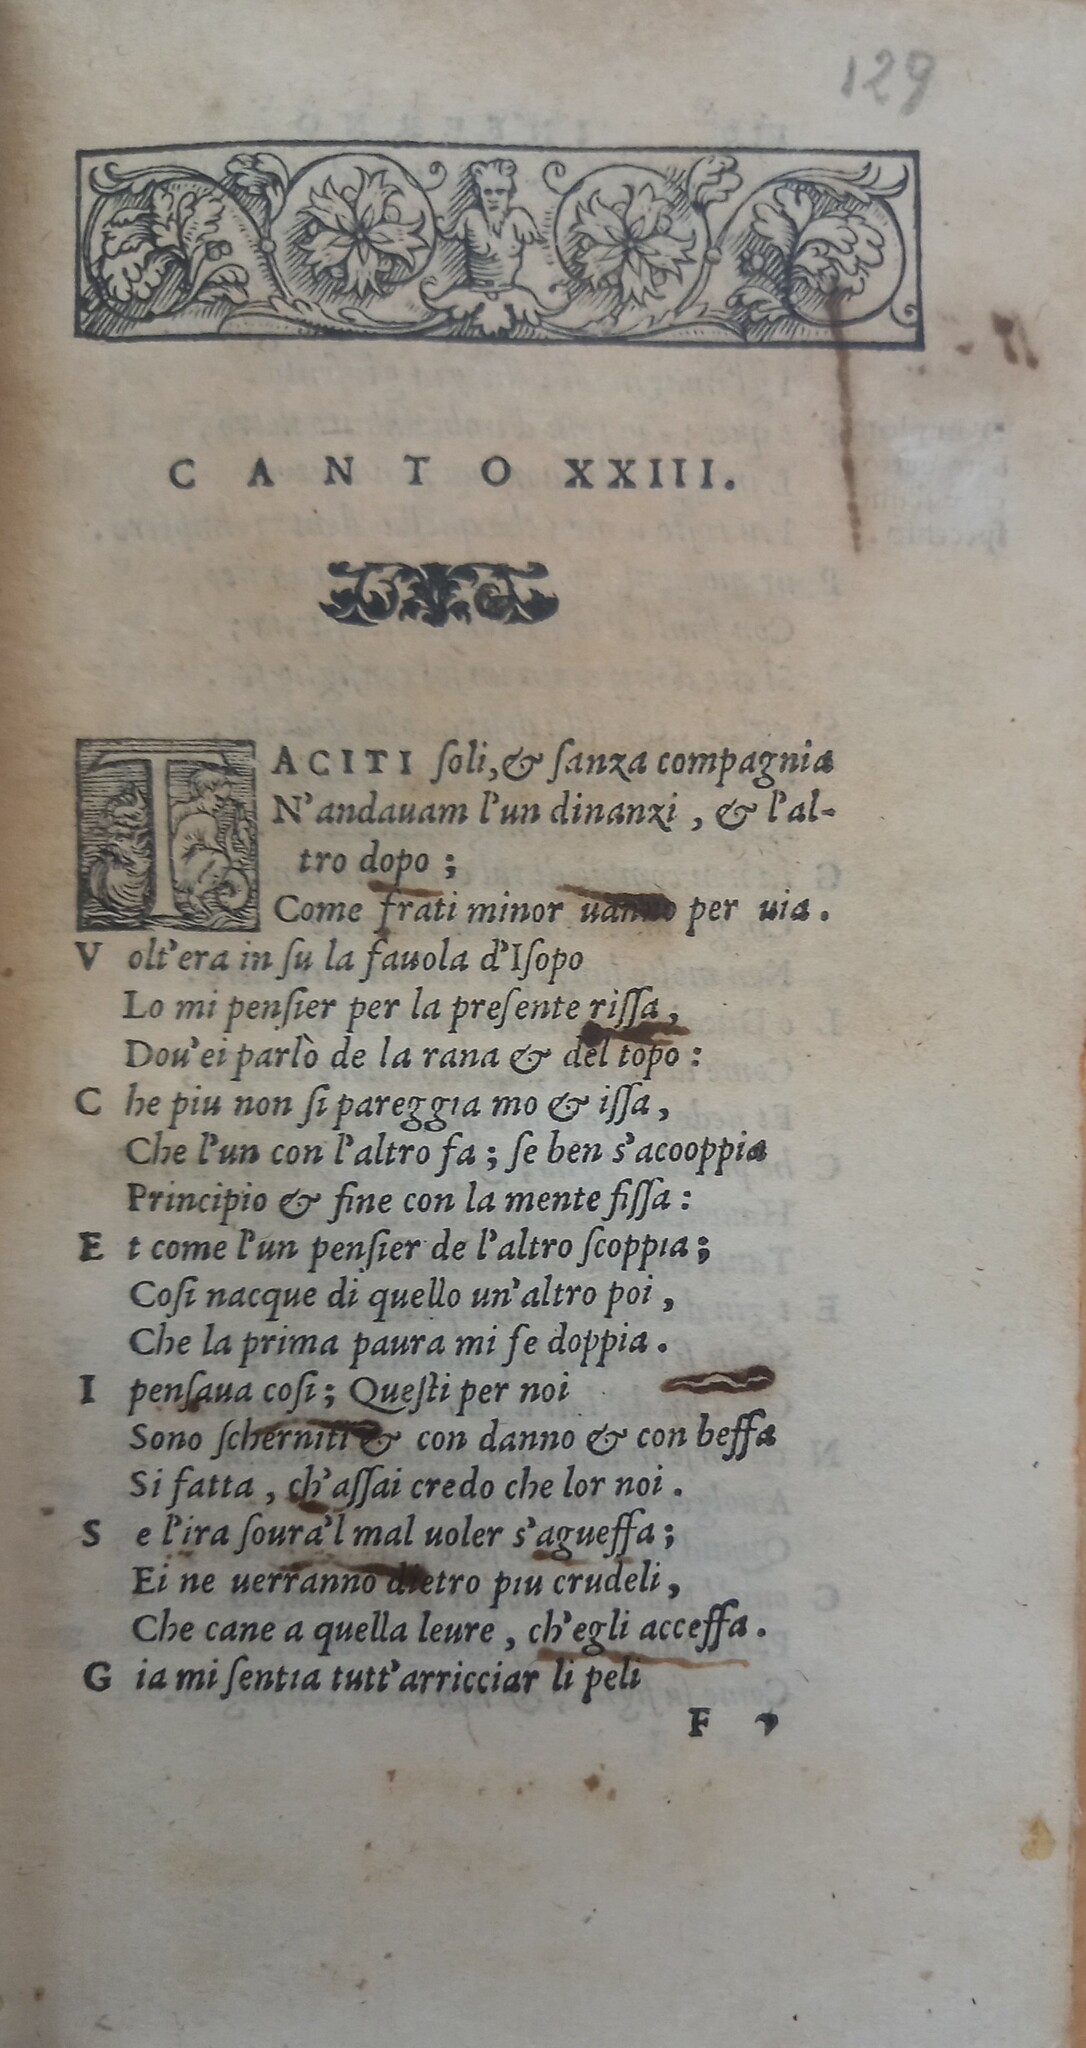 129
CANTO XXIII.
TACITI ſoli, & ſanza compagnia
N'andauam l'un dinanzi, & l'al-
tro dopo;
Come frati minor uanno per uia.
Volt'era in ſu la fauola d'Iſopo
Lo mi penſier per la preſente riſſa,
Dou'ei parlò de la rana & del topo:
Che piu non ſi pareggia mo & iſſa,
Che l'un con l'altro fa; ſe ben s'acooppia
Principio & fine con la mente fiſſa:
Et come l'un penſier de l'altro ſcoppia;
Coſi nacque di quello un'altro poi,
Che la prima paura mi fe doppia.
I penſaua coſi; Queſti per noi
Sono ſcherniti & con danno & con beffa
Si fatta, ch'aſſai credo che lor noi.
Se l'ira ſoura'l mal uoler s'agueffa;
Ei ne uerranno dietro piu crudeli,
Che cane a quella leure, ch'egli acceffa.
Gia mi ſentia tutt'arricciar li peli
F